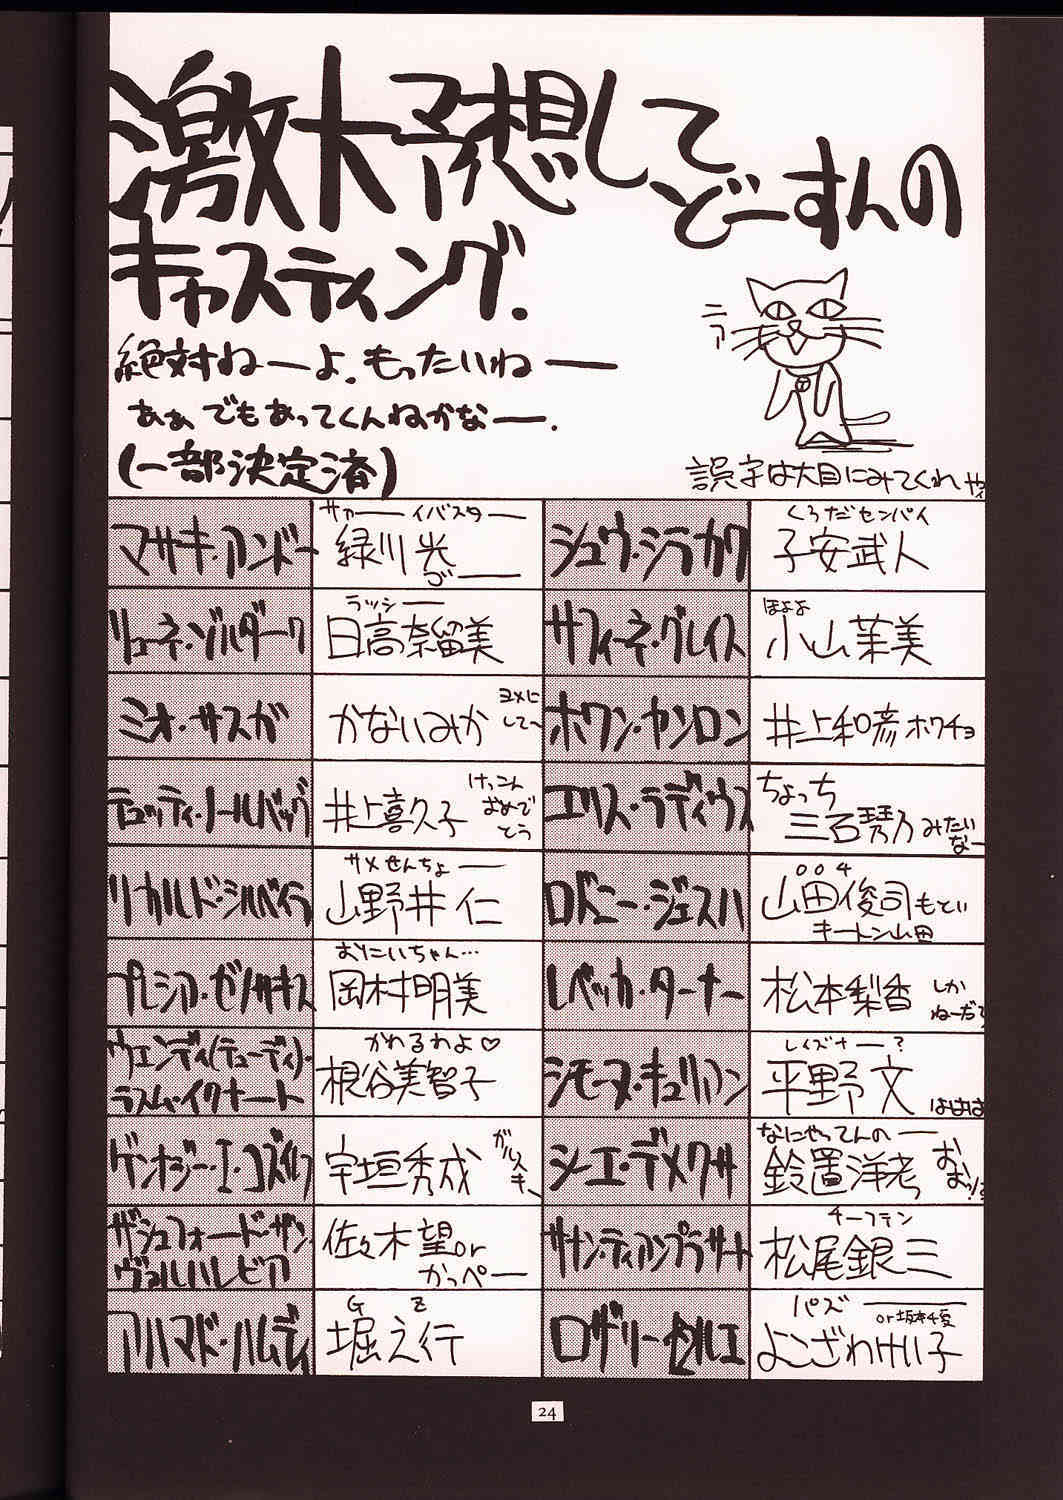 激大予想してどーすんの
キャスティング.
絶対ねーよ.もったいねー
あぁ でもあってくんねかなー.
(一部決定済)
ニァー
誤字は大目にみてくれや
マサキ・アンドー
サァーイバスター
緑川光
ゴー
シュウ・シラカワ
くろだセンパイ
子安武人
リューネ・ゾルダーク
ラッシー
日高奈留美
サフィーネ・グレイス
ほよよ
小山茉美
ミオ・サスガ
かないみか
ヨメに
して〜
ホワン・ヤンロン
井上和彦 ホワチョ
テュッティ・ノールバック
井上喜久子
けっこん
おめで
とう
エリス・ラディウス
ちょっち
三石琴乃 みたい
なー
リカルド・シルベイラ
サメせんちょー
山野井 仁
ロドニー・ジェスハ
004
山田俊司 もとい
キートン山田
プレシア・ゼノサキス
おにいちゃん…
岡村明美
レベッカ・ターナー
松本梨香
しか
ねーだろ
ウエンディ(テューディ)・
ラスム・イクナート
かわるわよ♡
根谷美智子
シモーヌ・キュリアン
レイズナー?
平野文
ははは
ゲンナジー・I・コズイレフ
宇垣秀成
ガルス
キー
シーエ・デメクサ
なにやってんのー
鈴置洋孝
おおッ!?
ザシュフォード・ザン・
ヴァルハレビア
佐々木望or
かっぺー
ササン・ティアンプラサート
チーフテン
松尾銀三
アハマド・ハムディ
G Z
堀之行
ロザリー・セルエ
パズー
or坂本千夏
よこざわけい子
24